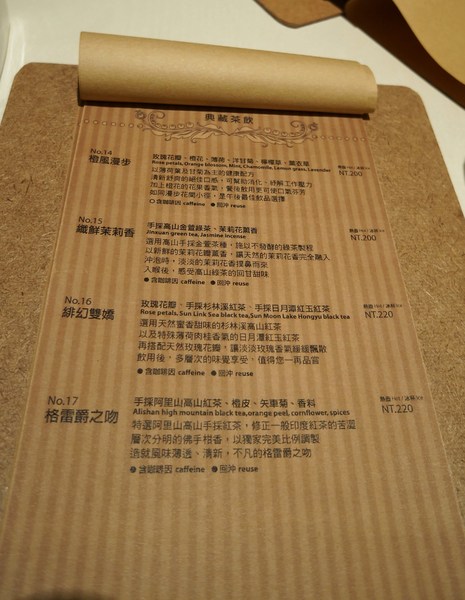 典藏茶飲
No.14
橙風漫步
玫瑰花瓣、橙花、薄荷、洋甘菊、檸檬草、薰衣草
Rose petals, Orange blossom, Mint, Chamomile, Lemon grass, Lavender
NT.200
以薄荷葉及甘菊為主的健康配方
清新舒爽的絕佳口感，可幫助消化、紓解工作壓力
加上橙花的花果香氣，餐後飲用更可使口氣芬芳
如同漫步花間小徑，是午後最佳飲品選擇
含咖啡因 caffeine ● 回沖 reuse
No.15
纖鮮茉莉香
手採高山金萱綠茶、茉莉花薰香
Jinxuan green tea, Jasmine incense
NT.200
選用高山手採金萱茶種，施以不發酵的綠茶製程
以新鮮的茉莉花薰香，讓天然的茉莉花香完全融入
沖泡時，淡淡的茉莉花香撲鼻而來
入喉後，感受高山綠茶的回甘甜味
● 含咖啡因 caffeine ● 回沖 reuse
No.16
緋幻雙嬌
玫瑰花瓣、手採杉林溪紅茶、手採日月潭紅玉紅茶
Rose petals, Sun Link Sea black tea, Sun Moon Lake Hongyu black tea
熱壺 Hot / 冰飲 Ice
NT.220
選用天然蜜香甜味的杉林溪高山紅茶
以及特殊薄荷肉桂香氣的日月潭紅玉紅茶
再搭配天然玫瑰花瓣，讓淡淡玫瑰香氣緩緩飄散
飲用後，多層次的味覺享受，值得您一再品嘗
● 含咖啡因 caffeine ● 回沖 reuse
No.17
格雷爵之吻
手採阿里山高山紅茶、橙皮、矢車菊、香料
Alishan high mountain black tea, orange peel, cornflower, spices
熱壺 Hot / 冰飲 Ice
NT.220
特選阿里山高山手採紅茶，修正一般印度紅茶的苦澀
層次分明的佛手柑香，以獨家完美比例調製
造就風味薄透、清新，不凡的格雷爵之吻
● 含咖啡因 caffeine ● 回沖 reuse